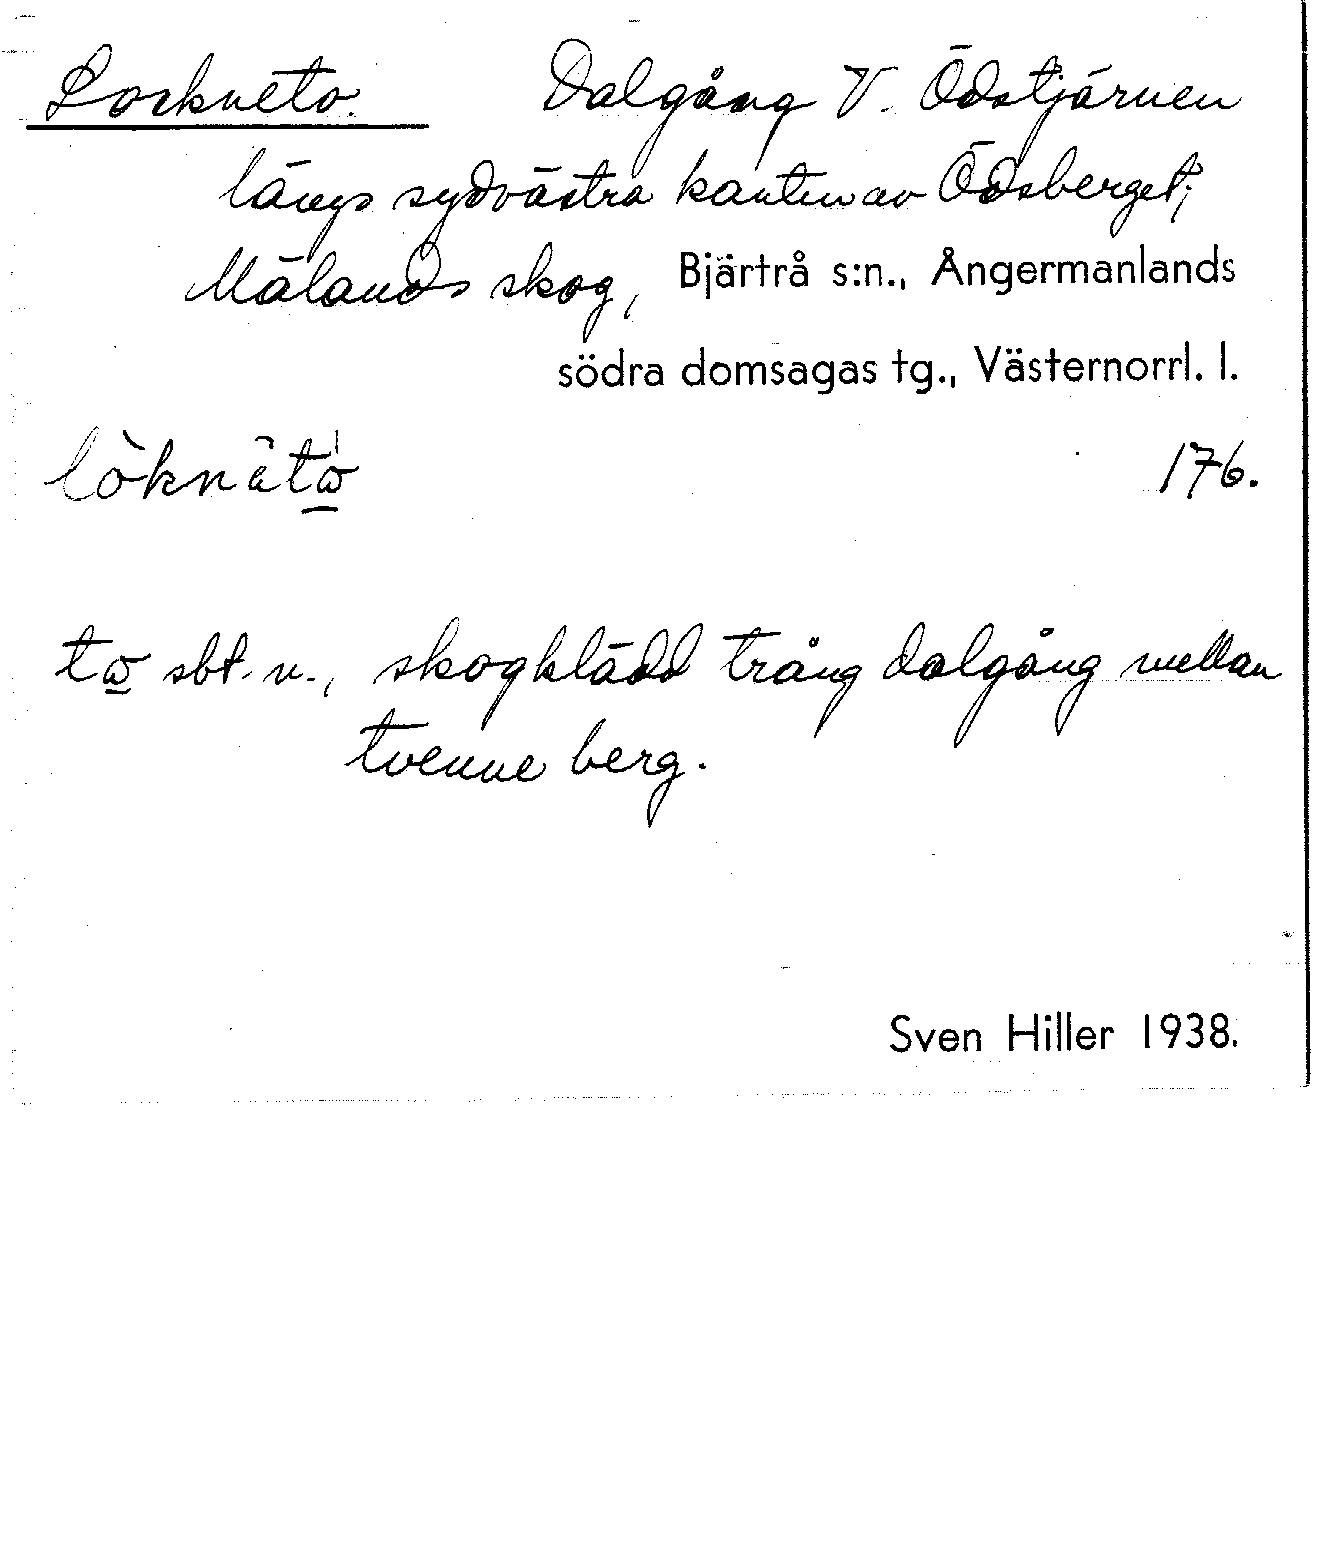 Lockneto. Dalgång V. Ödstjärnen
längs sydvästra kanten av Ödsberget;
Mälands skog, Bjärtrå s:n., Ångermanlands
södra domsagas tg., Västernorrl. l.
176.
sbt. n., skogklädd trång dalgång mellan
tvenne berg.
Sven Hiller 1938.